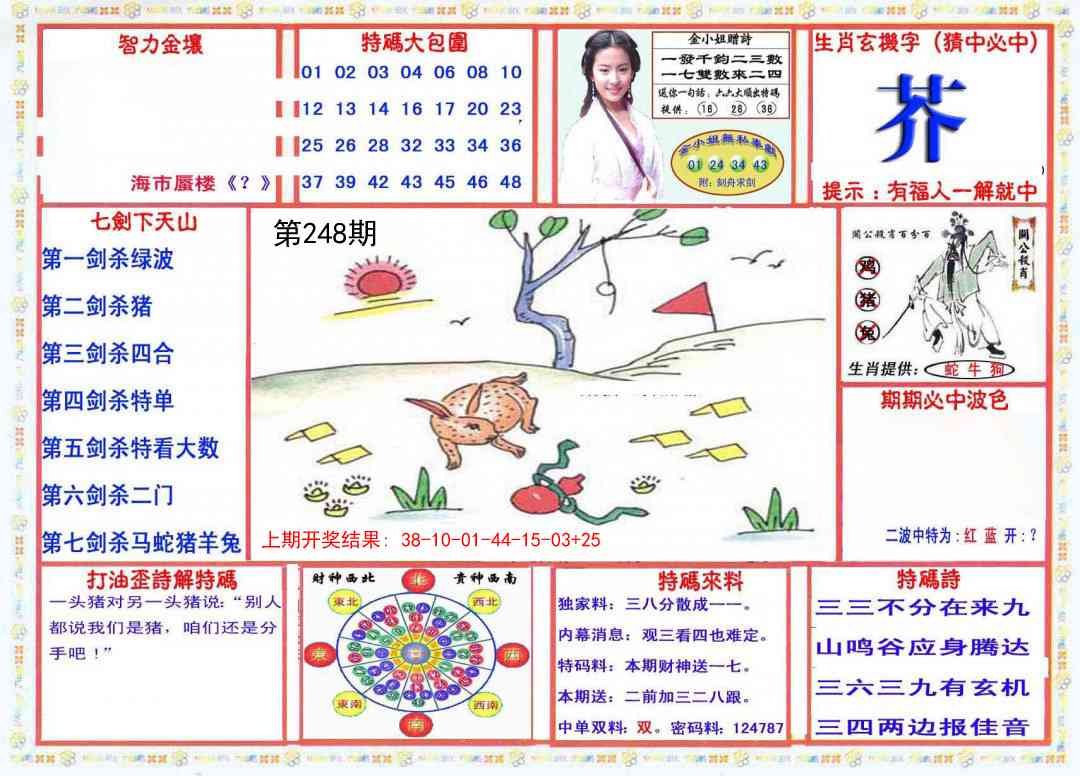 智力金壤
海市蜃楼《？》
特碼大包圍
01 02 03 04 06 08 10
12 13 14 16 17 20 23
25 26 28 32 33 34 36
37 39 42 43 45 46 48
金小姐赠詩
一發千鈞二三數
一七雙數來二四
送你一句話：六六大順出特碼
提供：18 28 38
金小姐無私奉獻
01 24 34 43
附：刻舟求剑
生肖玄機字（猜中必中）
芥
提示：有福人一解就中
七劍下天山
第一剑杀绿波
第二剑杀猪
第三剑杀四合
第四剑杀特单
第五剑杀特看大数
第六剑杀二门
第七剑杀马蛇猪羊兔
第248期
上期开奖结果: 38-10-01-44-15-03+25
關公殺肖百分百
關公殺肖
鸡
猪
兔
生肖提供：蛇 牛 狗
期期必中波色
二波中特为：红 蓝 开：？
打油歪詩解特碼
一头猪对另一头猪说：“别人
都说我们是猪，咱们还是分
手吧！”
财神西北 贵神西南
北
東北 西北
東 西
東南 西南
南
特碼來料
独家料：三八分散成一一。
内幕消息：观三看四也难定。
特码料：本期财神送一七。
本期送：二前加三二八跟。
中单双料：双。密码料：124787
特碼詩
三三不分在来九
山鸣谷应身腾达
三六三九有玄机
三四两边报佳音